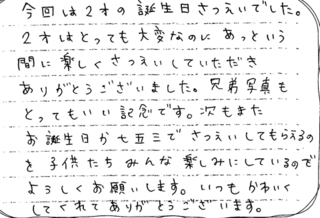 今回は2才の誕生日さつえいでした。
2才はとっても大変なのにあっという
間に楽しくさつえいしていただき
ありがとうございました。兄弟写真も
とってもいい記念です。次もまた
お誕生日か七五三でさつえいしてもらえるの
を子供たちみんな楽しみにしているので
よろしくお願いします。いつもかわいく
してくれてありがとうございます。